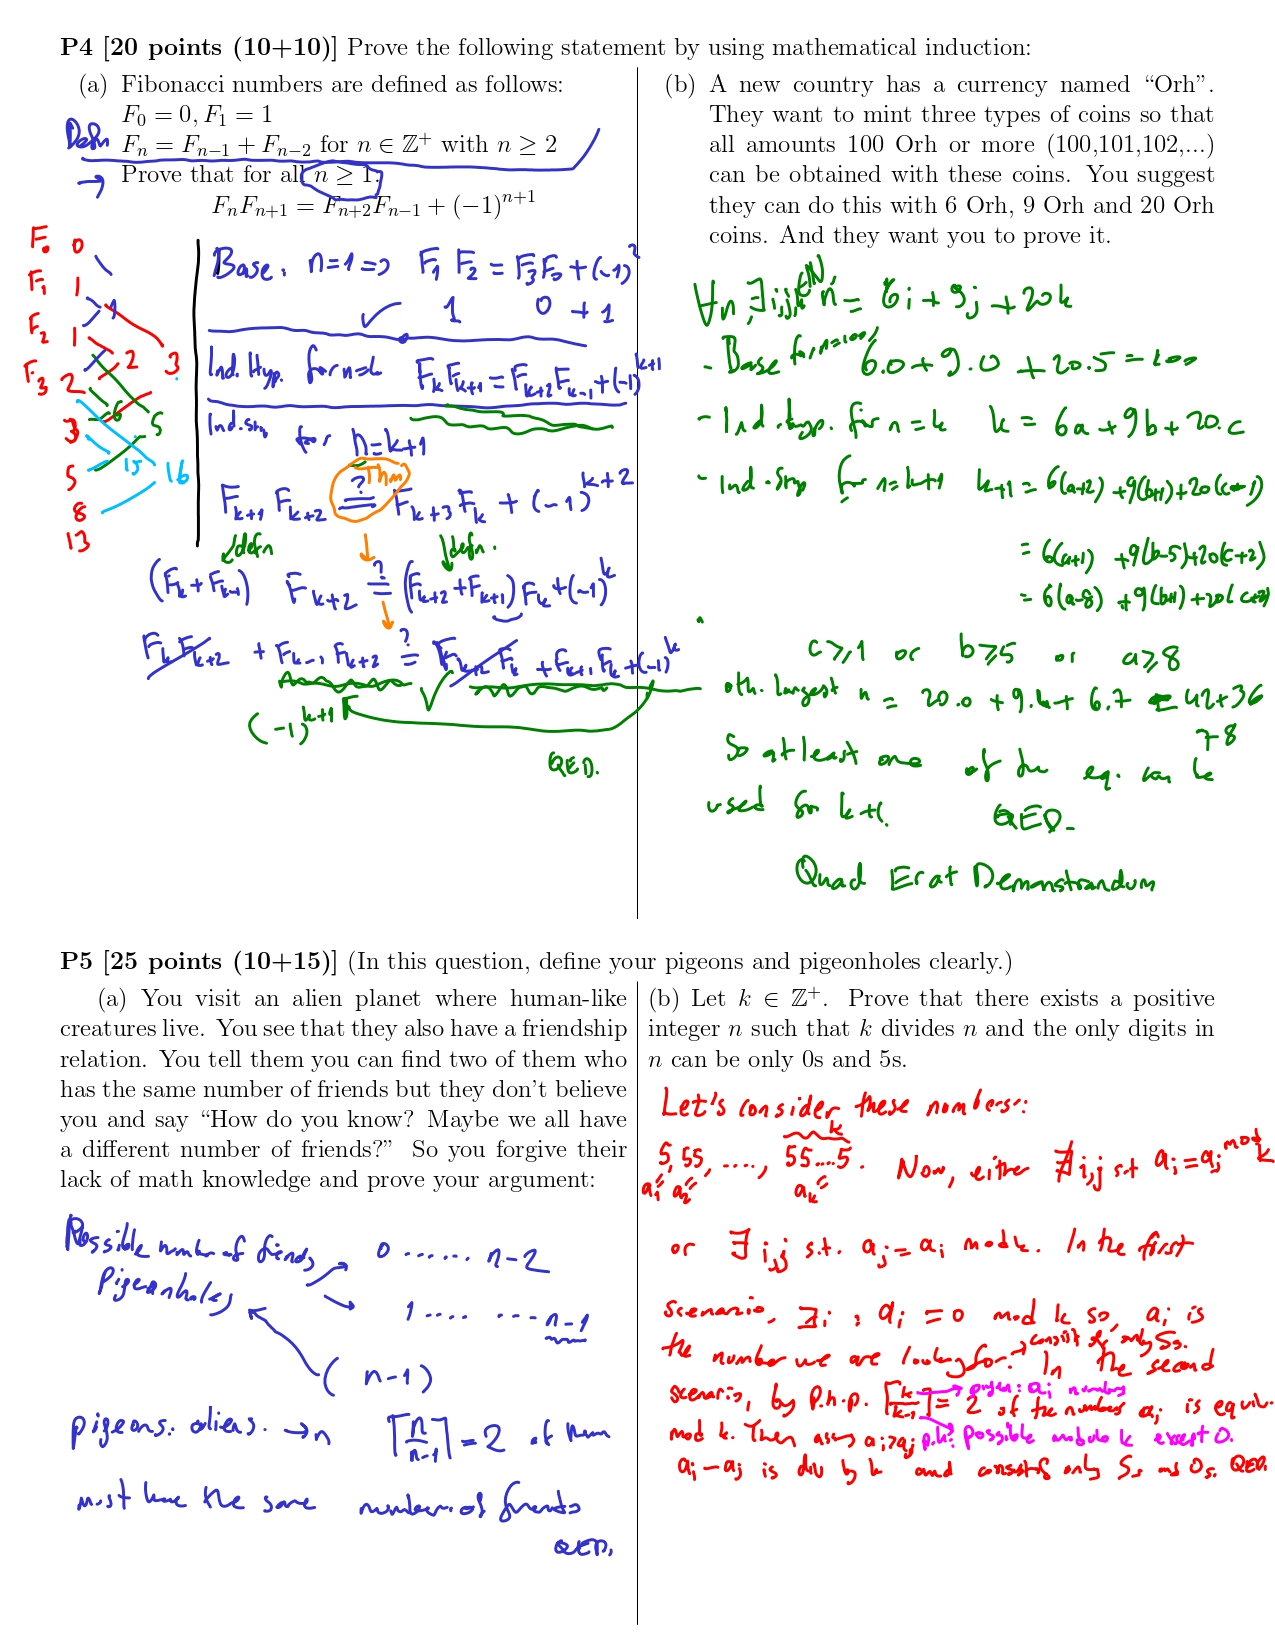 P4 [20 points (10+10)] Prove the following statement by using mathematical induction:
(a) Fibonacci numbers are defined as follows:
F₀ = 0, F₁ = 1
Defn Fₙ = Fₙ₋₁ + Fₙ₋₂ for n ∈ ℤ⁺ with n ≥ 2
→ Prove that for all n ≥ 1:
FₙFₙ₊₁ = Fₙ₊₂Fₙ₋₁ + (−1)ⁿ⁺¹
F₀ 0
F₁ 1
1
F₂ 1
2 3
F₃ 2
6 5
3
15 16
5
8
13
Base: n=1 => F₁ F₂ = F₃F₀ + (-1)²
✓ 1 0 + 1
Ind. Hyp. for n=k FₖFₖ₊₁ = Fₖ₊₂Fₖ₋₁ + (-1)ᵏ⁺¹
Ind. Stp for n=k+1
Thm
Fₖ₊₁ Fₖ₊₂ ?= Fₖ₊₃Fₖ + (-1)ᵏ⁺²
↓defn ↓defn.
(Fₖ+Fₖ₋₁) Fₖ₊₂ ?= (Fₖ₊₂+Fₖ₊₁)Fₖ+(-1)ᵏ
FₖFₖ₊₂ + Fₖ₋₁Fₖ₊₂ ?= Fₖ₊₂Fₖ + Fₖ₊₁Fₖ+(-1)ᵏ
(-1)ᵏ⁺¹ ✓
QED.
(b) A new country has a currency named “Orh”.
They want to mint three types of coins so that
all amounts 100 Orh or more (100,101,102,...)
can be obtained with these coins. You suggest
they can do this with 6 Orh, 9 Orh and 20 Orh
coins. And they want you to prove it.
∀n,∃i,j,k∈N, n = 6i + 9j + 20k
- Base for n=100, 6.0+9.0+20.5=100
- Ind. hyp. for n=k k = 6a+9b+20.c
- Ind. Stp for n=k+1 k+1 = 6(a+2)+9(b+1)+20(c-1)
= 6(a+1)+9(b-5)+20(c+2)
= 6(a-8)+9(b+1)+20(c+2)
c≥1 or b≥5 or a≥8
oth. largest n = 20.0+9.4+6.7 = 42+36
78
So at least one of the eq. can be
used for k+1. QED.
Quad Erat Demonstrandum
P5 [25 points (10+15)] (In this question, define your pigeons and pigeonholes clearly.)
(a) You visit an alien planet where human-like
creatures live. You see that they also have a friendship
relation. You tell them you can find two of them who
has the same number of friends but they don’t believe
you and say “How do you know? Maybe we all have
a different number of friends?” So you forgive their
lack of math knowledge and prove your argument:
Possible number of friends 0 ...... n-2
Pigeonholes 1 .... .... n-1
(n-1)
pigeons: aliens. → n ⌈n/n-1⌉ = 2 of them
must have the same number of friends
QED.
(b) Let k ∈ ℤ⁺. Prove that there exists a positive
integer n such that k divides n and the only digits in
n can be only 0s and 5s.
Let's consider these numbers:
k
5, 55, ...., 55....5. Now, either ∄ i,j s.t aᵢ=aⱼ mod k
a₁ a₂ aₖ
or ∃ i,j s.t. aⱼ=aᵢ mod k. In the first
scenario, ∃i, aᵢ = 0 mod k so, aᵢ is
the number we are looking for. → consist of only 5s. In the second
scenario, by P.h.p. ⌈k/k-1⌉ = 2 of the numbers aᵢ is equiv.
→ pigeon: aᵢ numbers
mod k. Then assm aᵢ>aⱼ p.h: possible modulo k except 0.
aᵢ-aⱼ is div by k and consists of only 5s and 0s. QED.